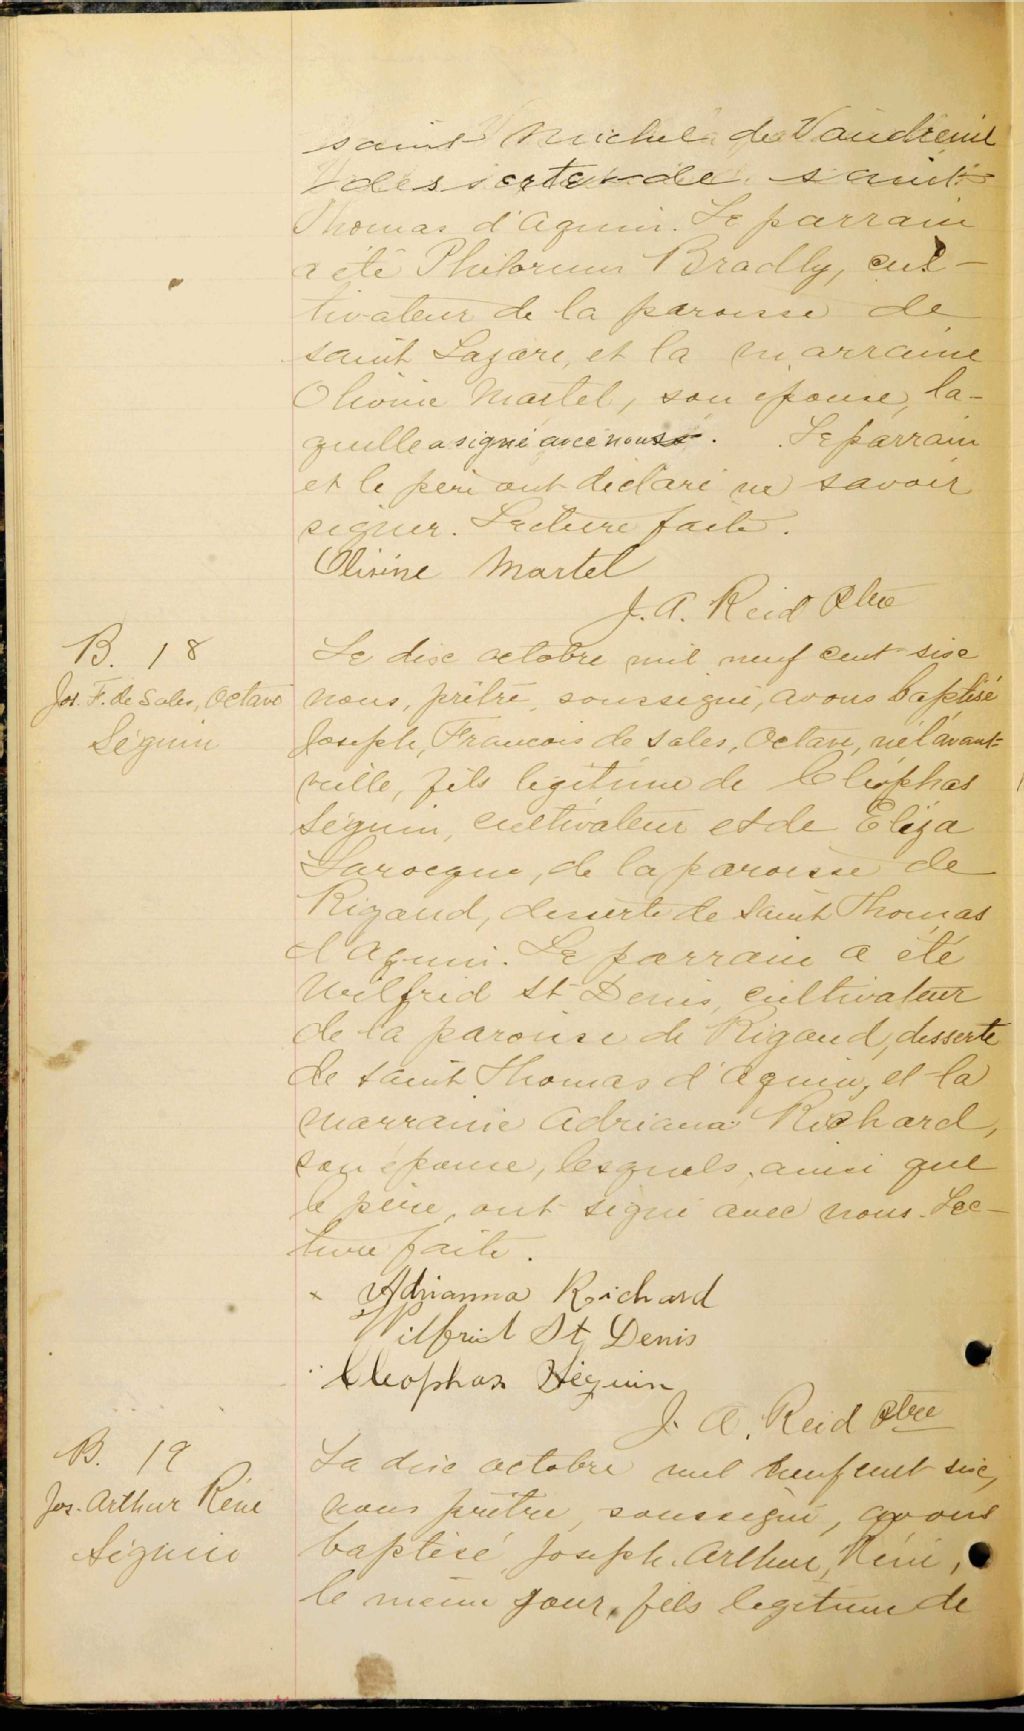 saint Michel de Vaudreuil
desserte de saint
Thomas d'Aquin. Le parrain
a été Philorum Bradlly, cul-
tivateur de la paroisse de
saint Lazare, et la marraine
Olivine Martel, son épouse, la-
quelle a signé avec nous. Le parrain
et le père ont déclaré ne savoir
signer. Lecture faite.
Olivine Martel
J. A. Reid Ptre
B. 18
Jos. F. de Sales, Octave
Séguin
Le dix octobre mil neuf cent six
nous, prêtre, soussigné, avons baptisé
Joseph, François de Sales, Octave, né l'avant-
veille, fils légitime de Cléophas
Séguin, cultivateur et de Eliza
Larocque, de la paroisse de
Rigaud, desserte de saint Thomas
d'Aquin. Le parrain a été
Wilfrid St Denis, cultivateur
de la paroisse de Rigaud, desserte
de saint Thomas d'Aquin, et la
marraine Adriana Richard,
son épouse, lesquels, ainsi que
le père, ont signé avec nous. Lec-
ture faite.
x Adrianna Richard
Wilfrid St Denis
Cleophas Séguin
J. A. Reid Ptre
B. 19
Jos. Arthur Réné
Séguin
Le dix octobre mil neuf cent six,
nous prêtre, soussigné, avons
baptisé Joseph, Arthur, Réné,
le même jour, fils légitime de